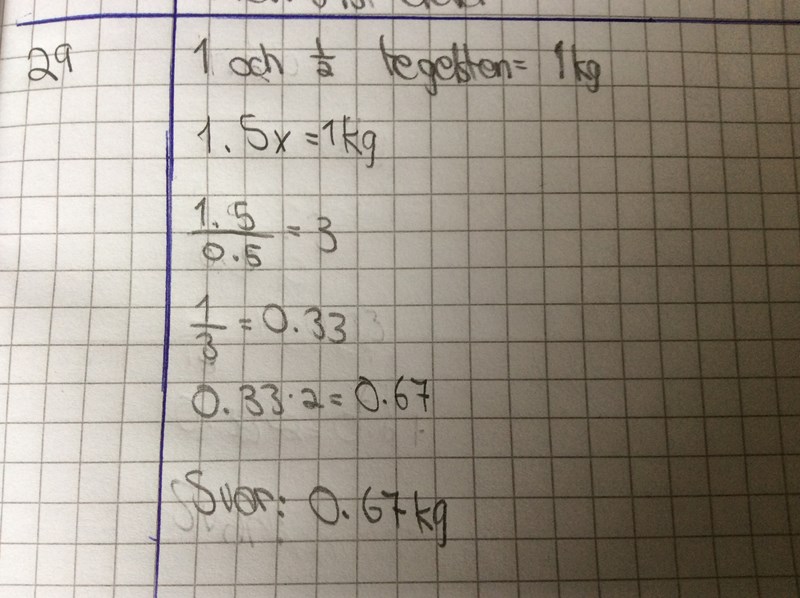 29 1 och 1/2 tegelsten = 1kg
1.5x = 1kg
1.5/0.5 = 3
1/3 = 0.33
0.33·2 = 0.67
Svar: 0.67kg